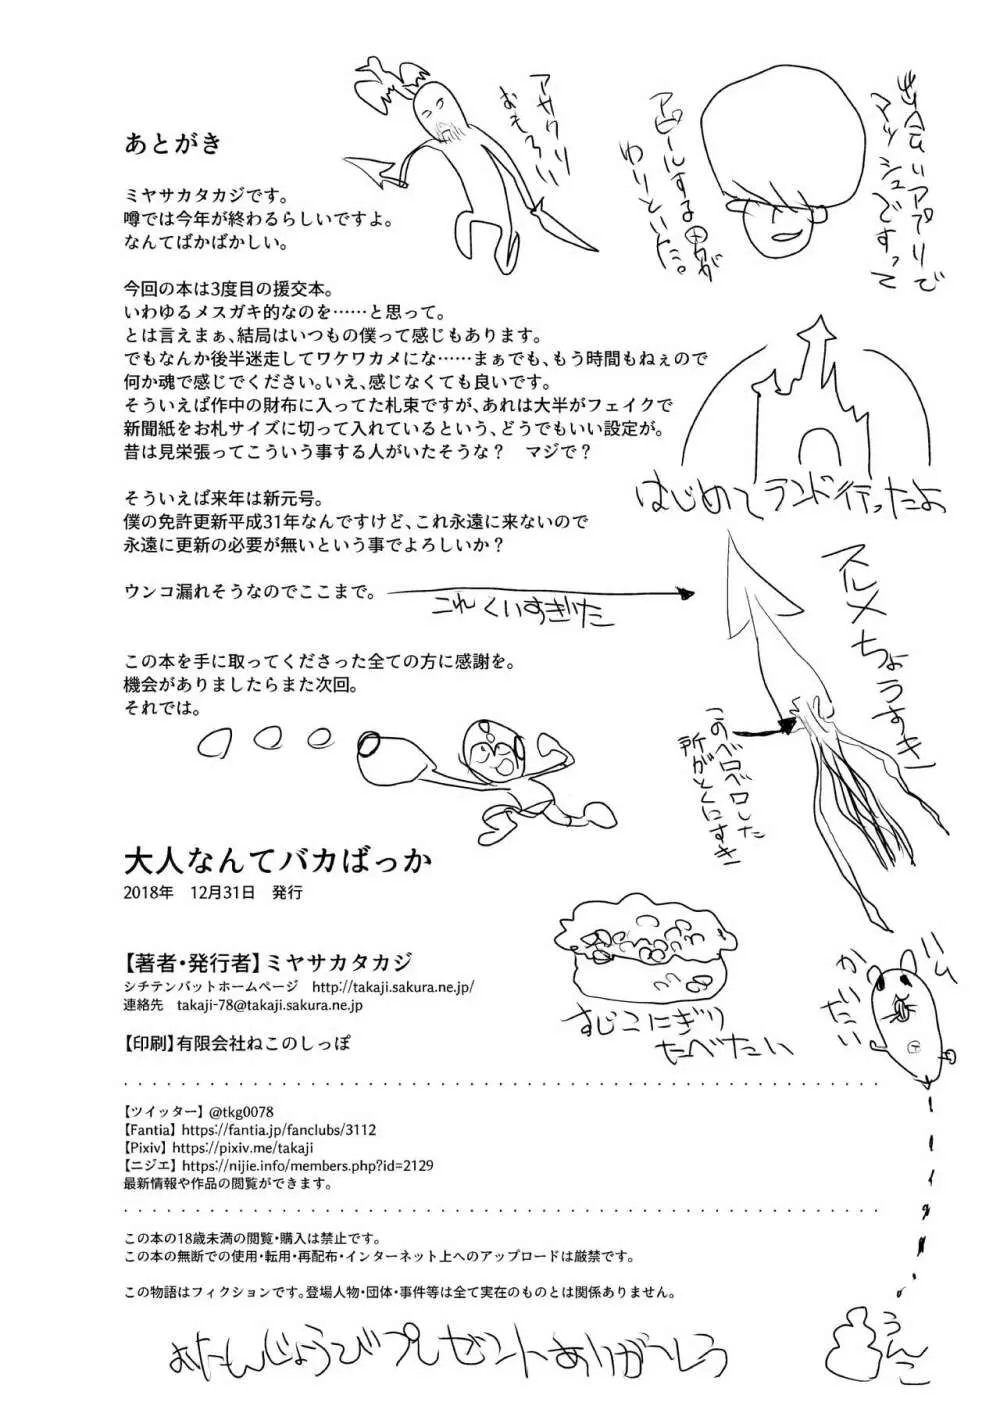 あとがき
ミヤサカタカジです。
噂では今年が終わるらしいですよ。
なんてばかばかしい。
今回の本は3度目の援交本。
いわゆるメスガキ的なのを……と思って。
とは言えまぁ、結局はいつもの僕って感じもあります。
でもなんか後半迷走してワケワカメにな……まぁでも、もう時間もねぇので
何か魂で感じでください。いえ、感じなくても良いです。
そういえば作中の財布に入ってた札束ですが、あれは大半がフェイクで
新聞紙をお札サイズに切って入れているという、どうでもいい設定が。
昔は見栄張ってこういう事する人がいたそうな？　マジで？
そういえば来年は新元号。
僕の免許更新平成31年なんですけど、これ永遠に来ないので
永遠に更新の必要が無いという事でよろしいか？
ウンコ漏れそうなのでここまで。
これくいすぎた
この本を手に取ってくださった全ての方に感謝を。
機会がありましたらまた次回。
それでは。
アサクリ
おもろい
出会いアプリで
マッシュですって
アピールする男が
わりといた。
はじめてランド行ったよ
スルメちょうすき
このベロベロした
所がとくにすき
すじこにぎり
たべたい
ハム
かだい
うんこ
大人なんてバカばっか
2018年　12月31日　発行
【著者・発行者】ミヤサカタカジ
シチテンバットホームページ　http://takaji.sakura.ne.jp/
連絡先　takaji-78@takaji.sakura.ne.jp
【印刷】有限会社ねこのしっぽ
【ツイッター】@tkg0078
【Fantia】https://fantia.jp/fanclubs/3112
【Pixiv】https://pixiv.me/takaji
【ニジエ】https://nijie.info/members.php?id=2129
最新情報や作品の閲覧ができます。
この本の18歳未満の閲覧・購入は禁止です。
この本の無断での使用・転用・再配布・インターネット上へのアップロードは厳禁です。
この物語はフィクションです。登場人物・団体・事件等は全て実在のものとは関係ありません。
おたんじょうびプレゼントありがとう